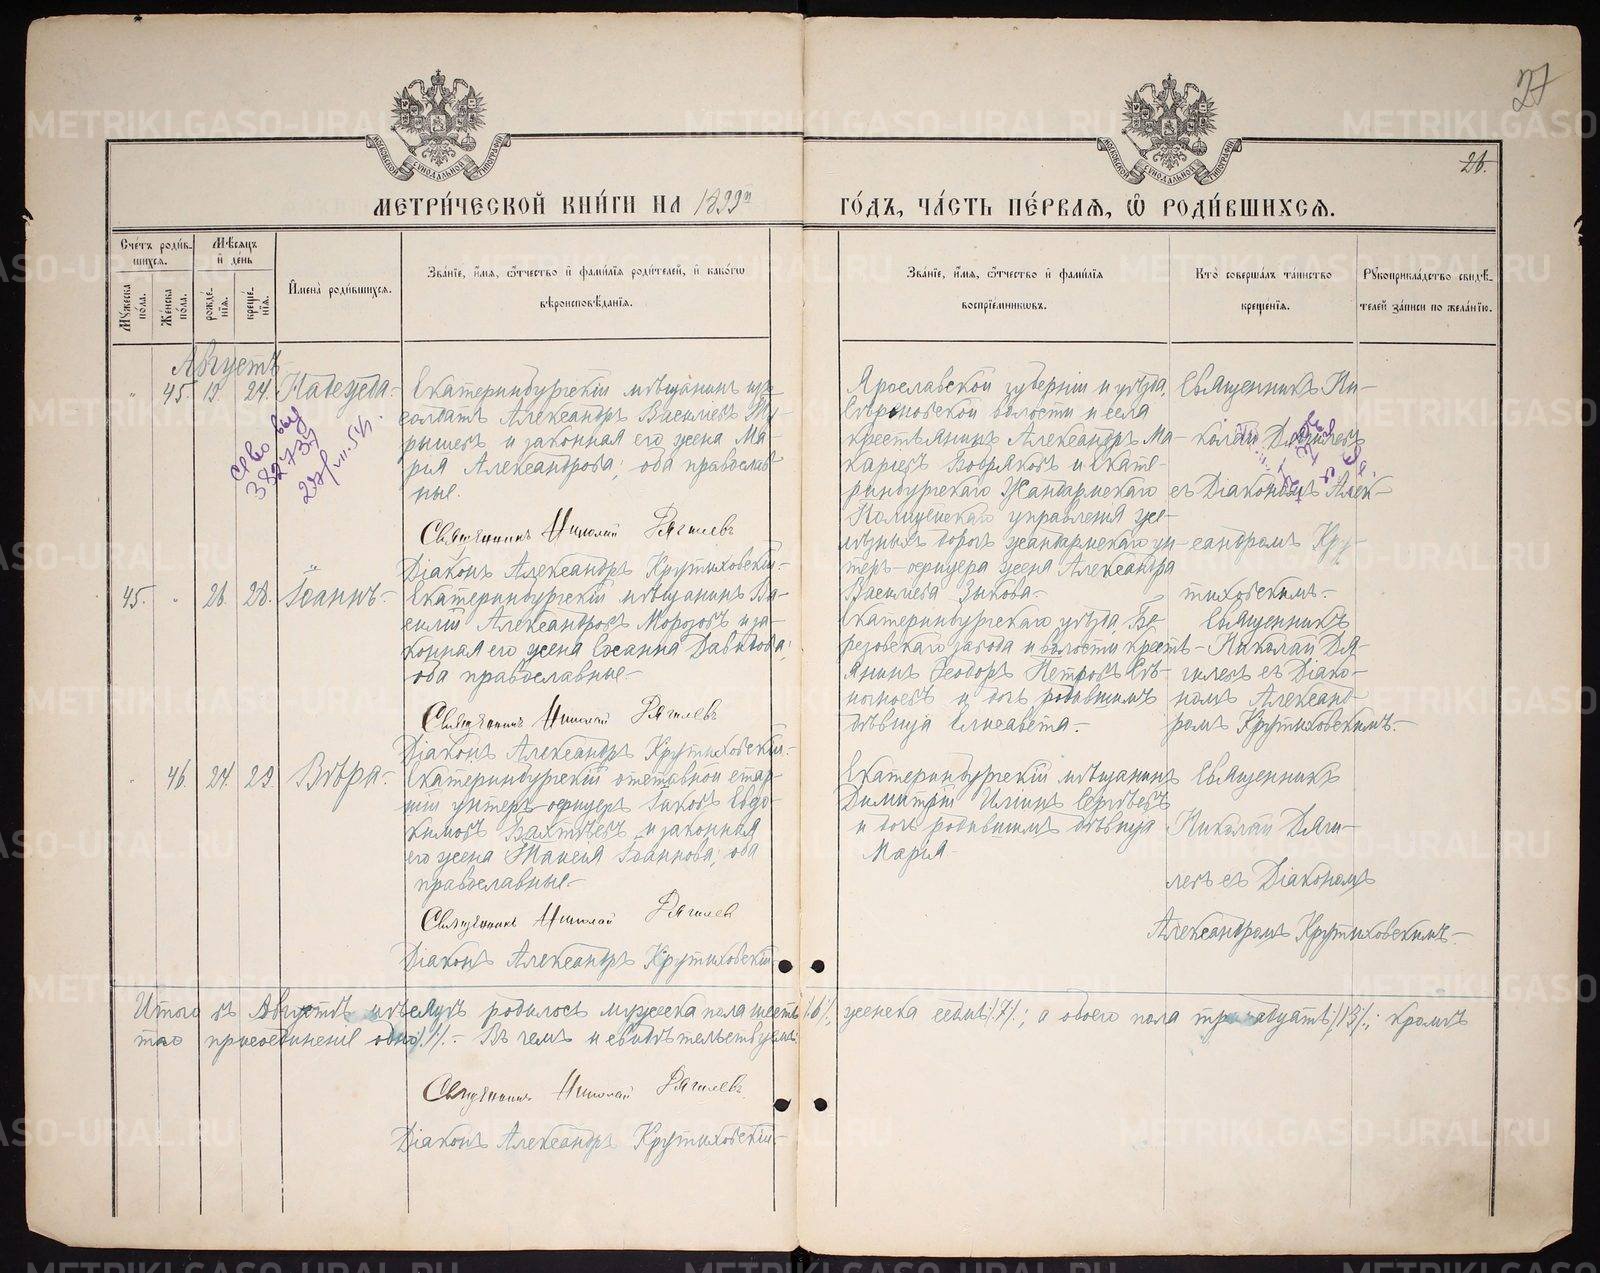 27
26.
МЕТРИ́ЧЕСКОЙ КНИ́ГИ НА 1899й ГО́ДЪ, ЧА́СТЬ ПЕ́РВАѦ, Ѡ҆ РОДИ́ВШИХСѦ.
Сче́тъ роди́вшихсѧ.
Мꙋ́жеска по́ла.
Же́нска по́ла.
Мѣ́сѧцъ и҆ де́нь
рожде́нїѧ.
креще́нїѧ.
И҆мена̀ роди́вшихсѧ.
Зва́нїе, и҆́мѧ, ѻ҆́тчество и҆ фами́лїѧ роди́телей, и҆ како́гѡ
вѣроисповѣ́данїѧ.
Зва́нїе, и҆́мѧ, ѻ҆́тчество и҆ фами́лїѧ
воспрїе́мниковъ.
Кто̀ соверша́лъ та́инство
креще́нїѧ.
Рꙋкоприкла́дство свидѣ́телей за́писи по жела́нїю.
Августъ
45. 24. Надежда.
Екатеринбургскій мѣщанинъ из
солдатъ Александръ Васильевъ
и законная его жена Ма-
рія Александрова; оба православ
ные.
Священникъ Николай Дягилевъ
Діаконъ Александръ Крутиховскій.
Ярославской губерніи и уѣзда,
волости и села
крестьянинъ Александръ Ма-
каріевъ Бобряковъ и Екате-
ринбургскаго Жандармскаго
Полицейскаго управленія же-
лѣзныхъ дорогъ жандармскаго ун-
теръ-офицера жена Александра
Васильева Зыкова.
Священникъ Ни-
колай Дягилевъ
съ Діакономъ Алек-
сандромъ Кру-
тиховскимъ.
45. 28. Іоаннъ.
Екатеринбургскій мѣщанинъ Ва-
силій Александровъ Морозовъ и за-
конная его жена Сосанна Давидова;
оба православные.
Священникъ Николай Дягилевъ
Діаконъ Александръ Крутиховскій.
Екатеринбургскаго уѣзда, Бе-
резовскаго завода и волости кресть-
янинъ Ѳеодоръ Петровъ
и дочь родившимъ
дѣвица Елисавета.
Священникъ
Николай Дя-
гилевъ съ Діако-
номъ Александ-
ромъ Крутиховскимъ.
46. 24. 29. Вѣра.
Екатеринбургскій отставной стар-
шій унтеръ-офицеръ Іаковъ Евдо-
кимовъ Бахтѣевъ и законная
его жена Таисія Іоаннова; оба
православные.
Священникъ Николай Дягилевъ
Діаконъ Александръ Крутиховскій.
Екатеринбургскій мѣщанинъ
Димитрій Илiинъ Сергѣевъ
и дочь родившимъ дѣвица
Марія
Священникъ
Николай Дяги-
левъ съ Діакономъ
Александромъ Крутиховскимъ.
Итого въ Августѣ мѣсяцѣ родилось мужеска пола шесть /6/, женска семь /7/; а обоего пола тринадцать /13/; кромѣ
того присоединеніе одно /1/. Въ чемъ и свидѣтельствуемъ:
Священникъ Николай Дягилевъ
Діаконъ Александръ Крутиховскій
METRIKI.GASO-URAL.RU